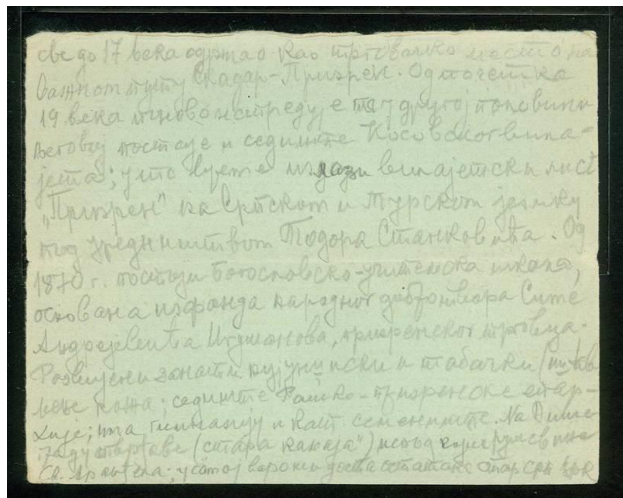 све до 17 века одржао као трговачко место на
важном путу Скадар-Призрен. Од почетка
19 века поново напредује та у другој половини
његовој постаје и седиште Косовског вила-
јета; у то време излази вилајетски лист
„Призрен" на Српском и Турском језику
под уредништвом Тодора Станковића. Од
1870 г. постоји богословско-учитељска школа,
основана из фонда народног добротвора Симе
Андрејевића Игуманова, призренског трговца.
Развијени занати кујунџиски и табачки
коже; седиште Рашко-призренске епар-
хије; има гимназију и семениште. На
граду (стара испод
Св. Арханђела; у доста остатака